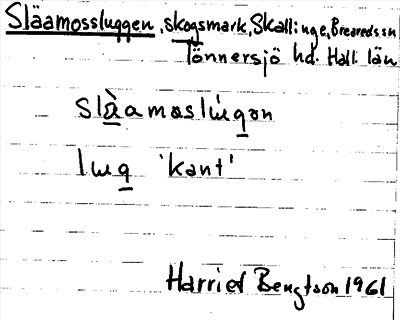 Släamossluggen, skogsmark, Skällinge, Breareds sn
Tönnersjö hd. Hall. län
lɯg 'kant'
Harriet Bengtson 1961